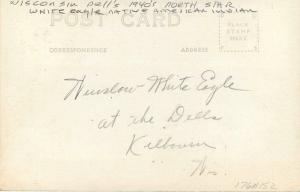 WISCONSIN Dell's 1940's NORTH STAR
WHITE eagle NATIVE AMERICAN INDIAN
POST CARD
CORRESPONDENCE
ADDRESS
PLACE
STAMP
HERE
Winslow White Eagle
at the Dells
Kilbourn
Wis.